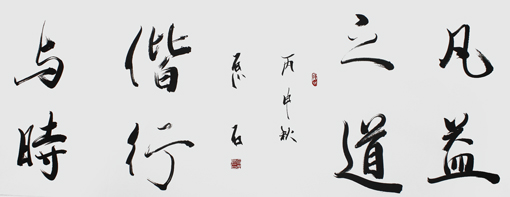 凡益
之道
丙申秋
偕行
与時